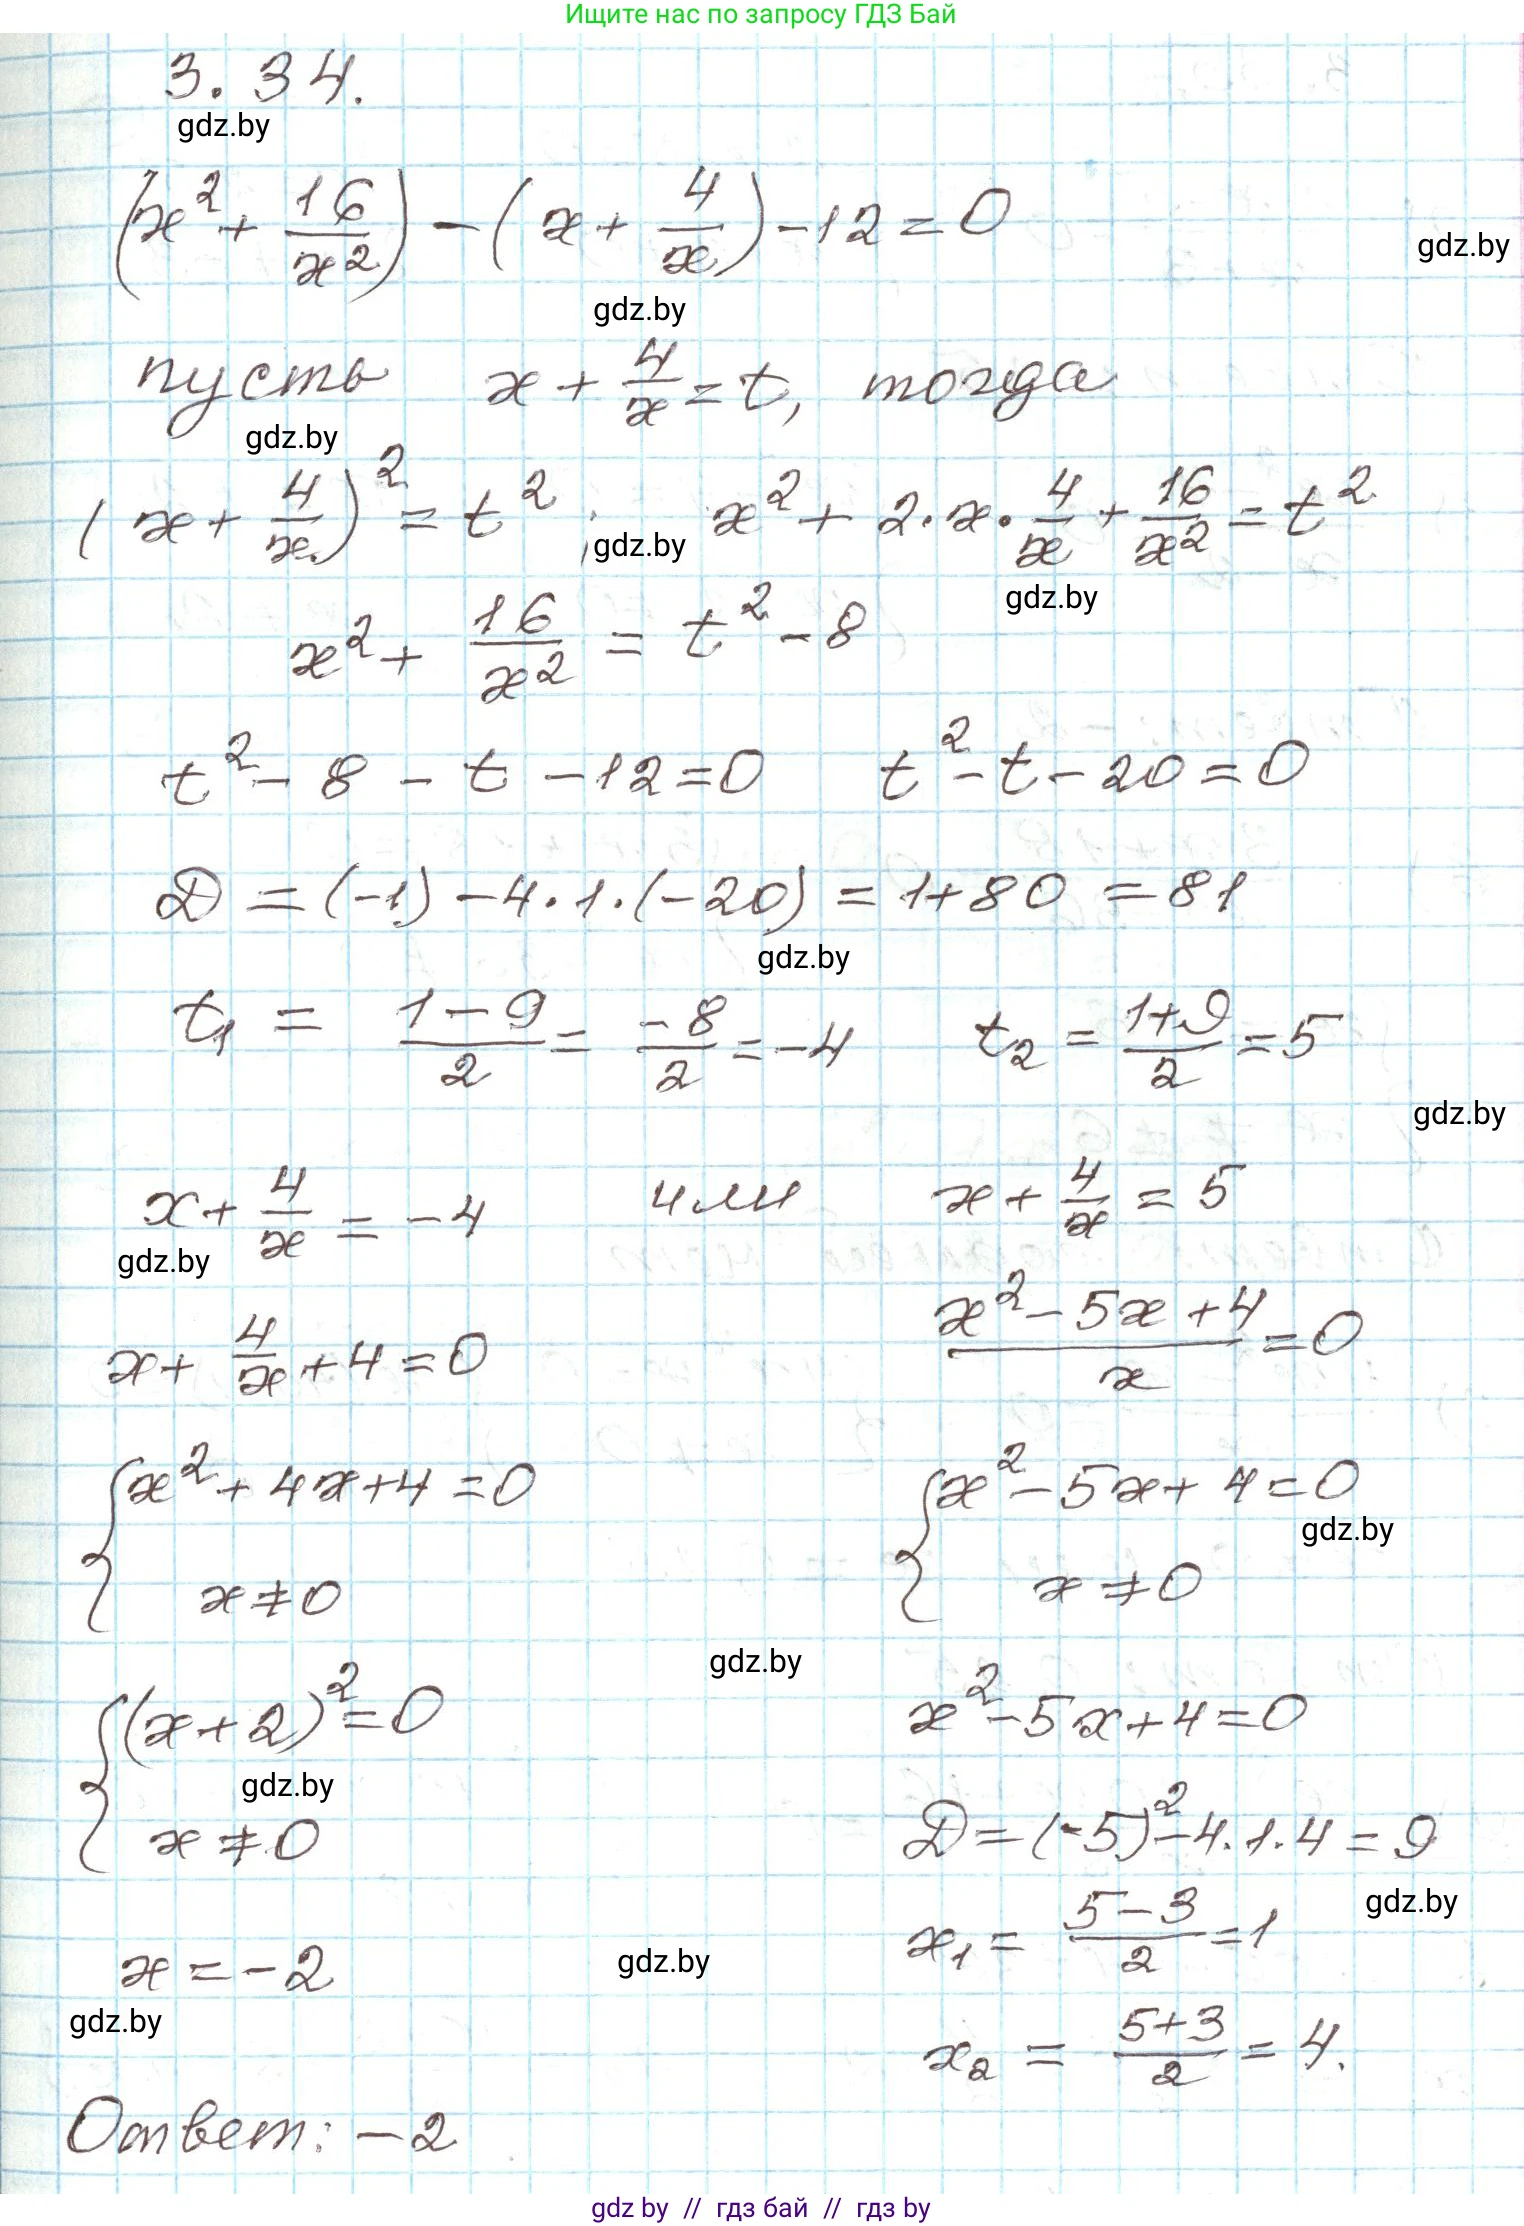 Ищите нас по запросу ГДЗ Бай
3.34.
gdz.by
(x² + 16/x²) - (x + 4/x) - 12 = 0
gdz.by
gdz.by
пусть x + 4/x = t, тогда
gdz.by
(x + 4/x)² = t²; x² + 2·x·4/x + 16/x² = t²
gdz.by
gdz.by
x² + 16/x² = t² - 8
t² - 8 - t - 12 = 0 t² - t - 20 = 0
D = (-1) - 4·1·(-20) = 1 + 80 = 81
gdz.by
t₁ = (1 - 9)/2 = -8/2 = -4 t₂ = (1+9)/2 = 5
gdz.by
x + 4/x = -4 или x + 4/x = 5
gdz.by
x + 4/x + 4 = 0 (x² - 5x + 4)/x = 0
{x² + 4x + 4 = 0 {x² - 5x + 4 = 0
gdz.by
x ≠ 0 x ≠ 0
gdz.by
{(x + 2)² = 0 x² - 5x + 4 = 0
gdz.by
x ≠ 0 D = (-5)² - 4·1·4 = 9
gdz.by
x = -2 x₁ = (5 - 3)/2 = 1
gdz.by
gdz.by
x₂ = (5+3)/2 = 4.
Ответ: -2
gdz by // гдз бай // гдз by